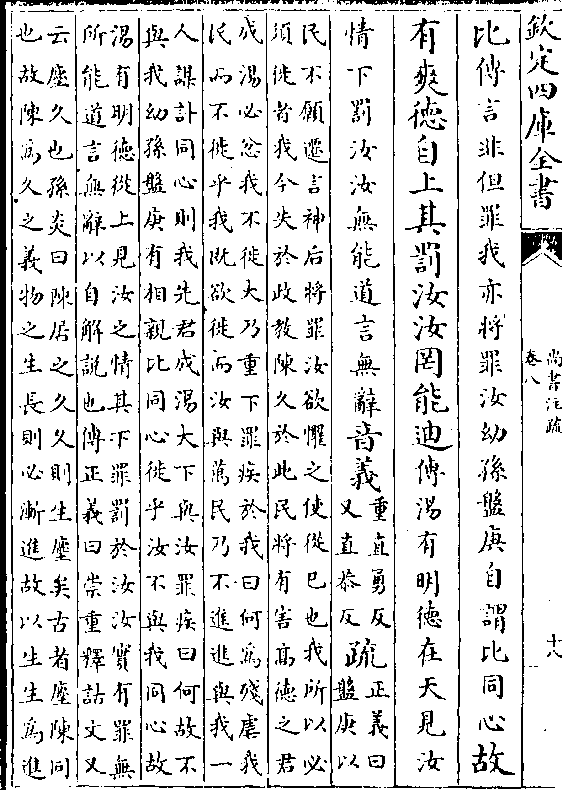 欽定四庫全書
尚書注疏
卷八
十八
比傳言非但罪我亦將罪汝幼孫盤庚自謂比同心故
有爽徳自上其罰汝汝罔能迪傳湯有明徳在天見汝
情下罰汝汝無能道言無辭音義
重直勇反
又直恭反
疏
正義曰
盤庚以
民不願遷言神后將罪汝欲懼之使從已也我所以必
須徙者我今失於政教陳久於此民將有害髙徳之君
成湯必忿我不徙大乃重下罪疾於我曰何為殘虐我
民而不徙乎我既欲徙而汝與萬民乃不進進與我一
人謀計同心則我先君成湯大下與汝罪疾曰何故不
與我幼孫盤庚有相親比同心徙乎汝不與我同心故
湯有明徳從上見汝之情其下罪罰於汝汝實有罪無
所能道言無辭以自解説也傳正義曰崇重釋詁文又
云塵久也孫炎曰陳居之久久則生塵矣古者塵陳同
也故陳為久之義物之生長則必漸進故以生生為進